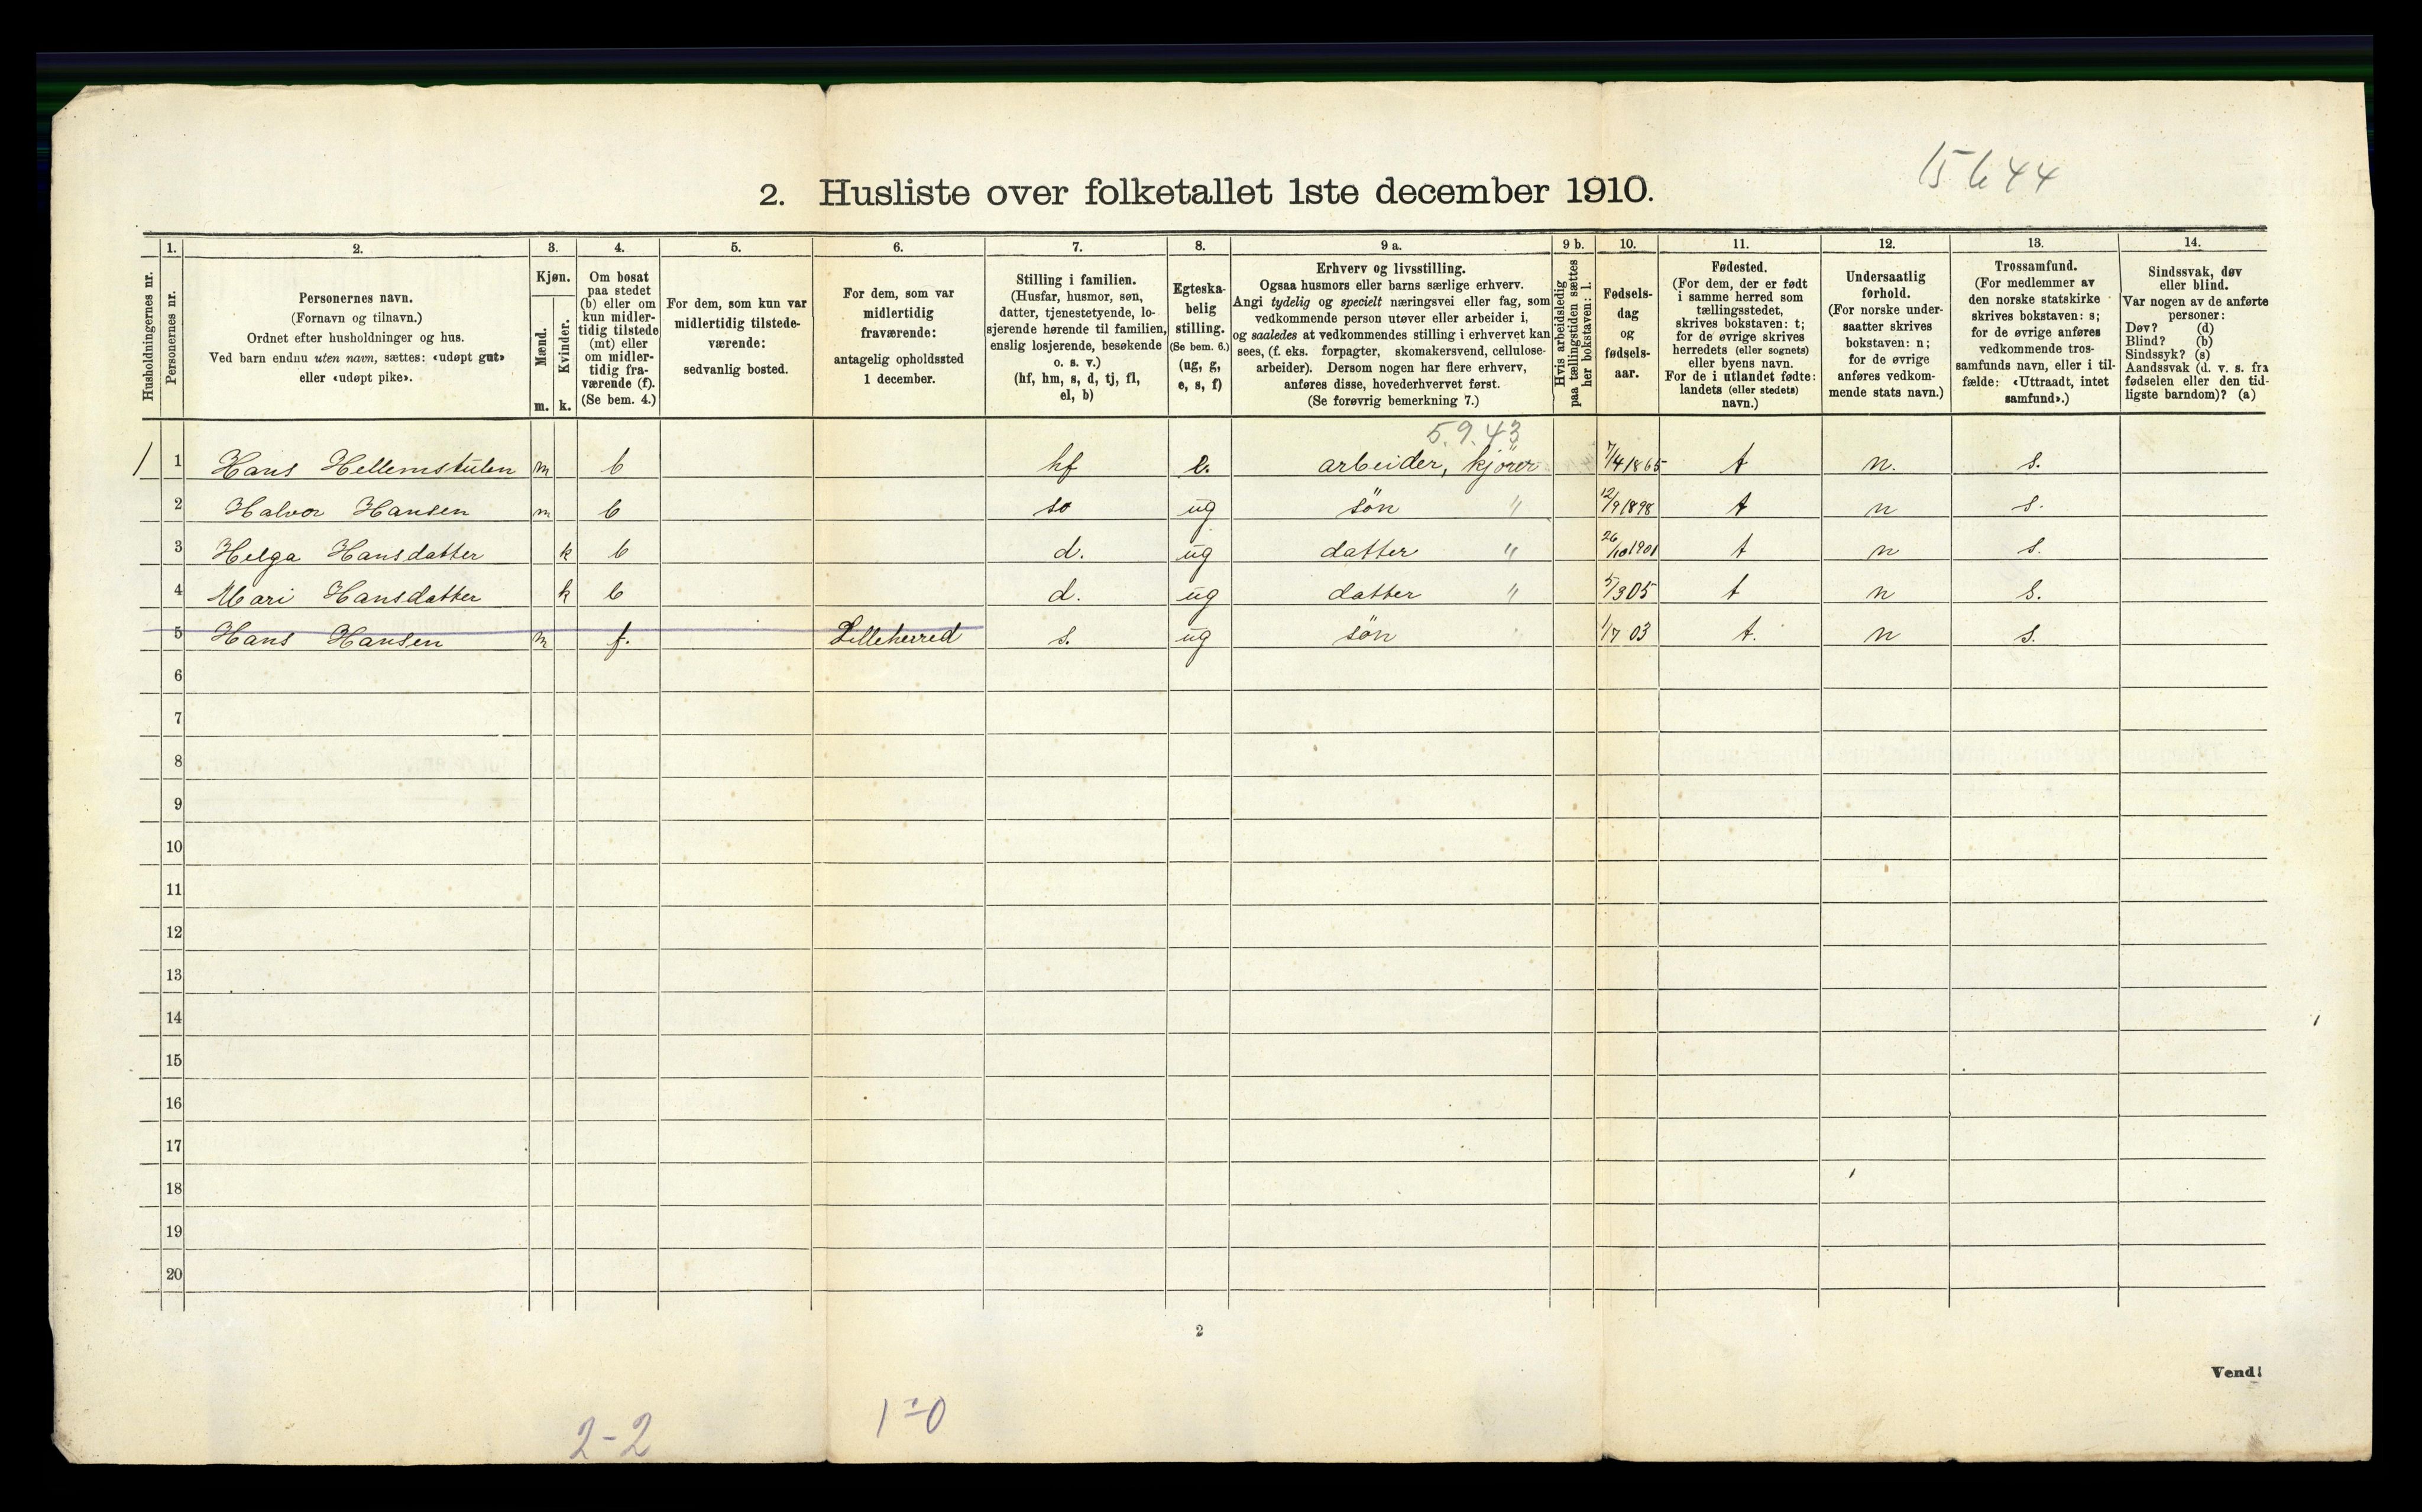 15 644
2. Husliste over folketallet 1ste december 1910.
Husholdningernes nr.
1.
Personernes nr.
2.
Personernes navn.
(Fornavn og tilnavn.)
Ordnet efter husholdninger og hus.
Ved barn endnu uten navn, sættes: «udøpt gut»
eller «udøpt pike».
3.
Kjøn.
Mænd.
m.
Kvinder.
k.
4.
Om bosat
paa stedet
(b) eller om
kun midler-
tidig tilstede
(mt) eller
om midler-
tidig fra-
værende (f).
(Se bem. 4.)
5.
For dem, som kun var
midlertidig tilstede-
værende:
sedvanlig bosted.
6.
For dem, som var
midlertidig
fraværende:
antagelig opholdssted
1 december.
7.
Stilling i familien.
(Husfar, husmor, søn,
datter, tjenestetyende, lo-
sjerende hørende til familien,
enslig losjerende, besøkende
o. s. v.)
(hf, hm, s, d, tj, fl,
el, b)
8.
Egteska-
belig
stilling.
(Se bem. 6.)
(ug, g,
e, s, f)
9 a.
Erhverv og livsstilling.
Ogsaa husmors eller barns særlige erhverv.
Angi tydelig og specielt næringsvei eller fag, som
vedkommende person utøver eller arbeider i,
og saaledes at vedkommendes stilling i erhvervet kan
sees, (f. eks. forpagter, skomakersvend, cellulose-
arbeider). Dersom nogen har flere erhverv,
anføres disse, hovederhvervet først.
(Se forøvrig bemerkning 7.)
9 b.
Hvis arbeidsledig
paa tællingstiden sættes
her bokstaven: l.
10.
Fødsels-
dag
og
fødsels-
aar.
11.
Fødested.
(For dem, der er født
i samme herred som
tællingsstedet,
skrives bokstaven: t;
for de øvrige skrives
herredets (eller sognets)
eller byens navn.
For de i utlandet fødte:
landets (eller stedets)
navn.)
12.
Undersaatlig
forhold.
(For norske under-
saatter skrives
bokstaven: n;
for de øvrige
anføres vedkom-
mende stats navn.)
13.
Trossamfund.
(For medlemmer av
den norske statskirke
skrives bokstaven: s;
for de øvrige anføres
vedkommende tros-
samfunds navn, eller i til-
fælde: «Uttraadt, intet
samfund».)
14.
Sindssvak, døv
eller blind.
Var nogen av de anførte
personer:
Døv? (d)
Blind? (b)
Sindssyk? (s)
Aandssvak (d. v. s. fra
fødselen eller den tid-
ligste barndom)? (a)
5.9.43
1 1 Hans Hellemstulen m b hf e. arbeider, kjörer 7/4 1865 t n. s.
2 Halvor Hansen m b sø ug sön " 12/9 1898 t n s.
3 Helga Hansdatter k b d. ug datter " 26/10 1901 t n s.
4 Mari Hansdatter k b d. ug datter " 5/3 05 t n s.
5 Hans Hansen m f. Lilleherred s. ug sön 1/7 03 t. n s.
6
7
8
9
10
11
12
13
14
15
16
17
18
19
20
2
Vend!
2-2 1-0